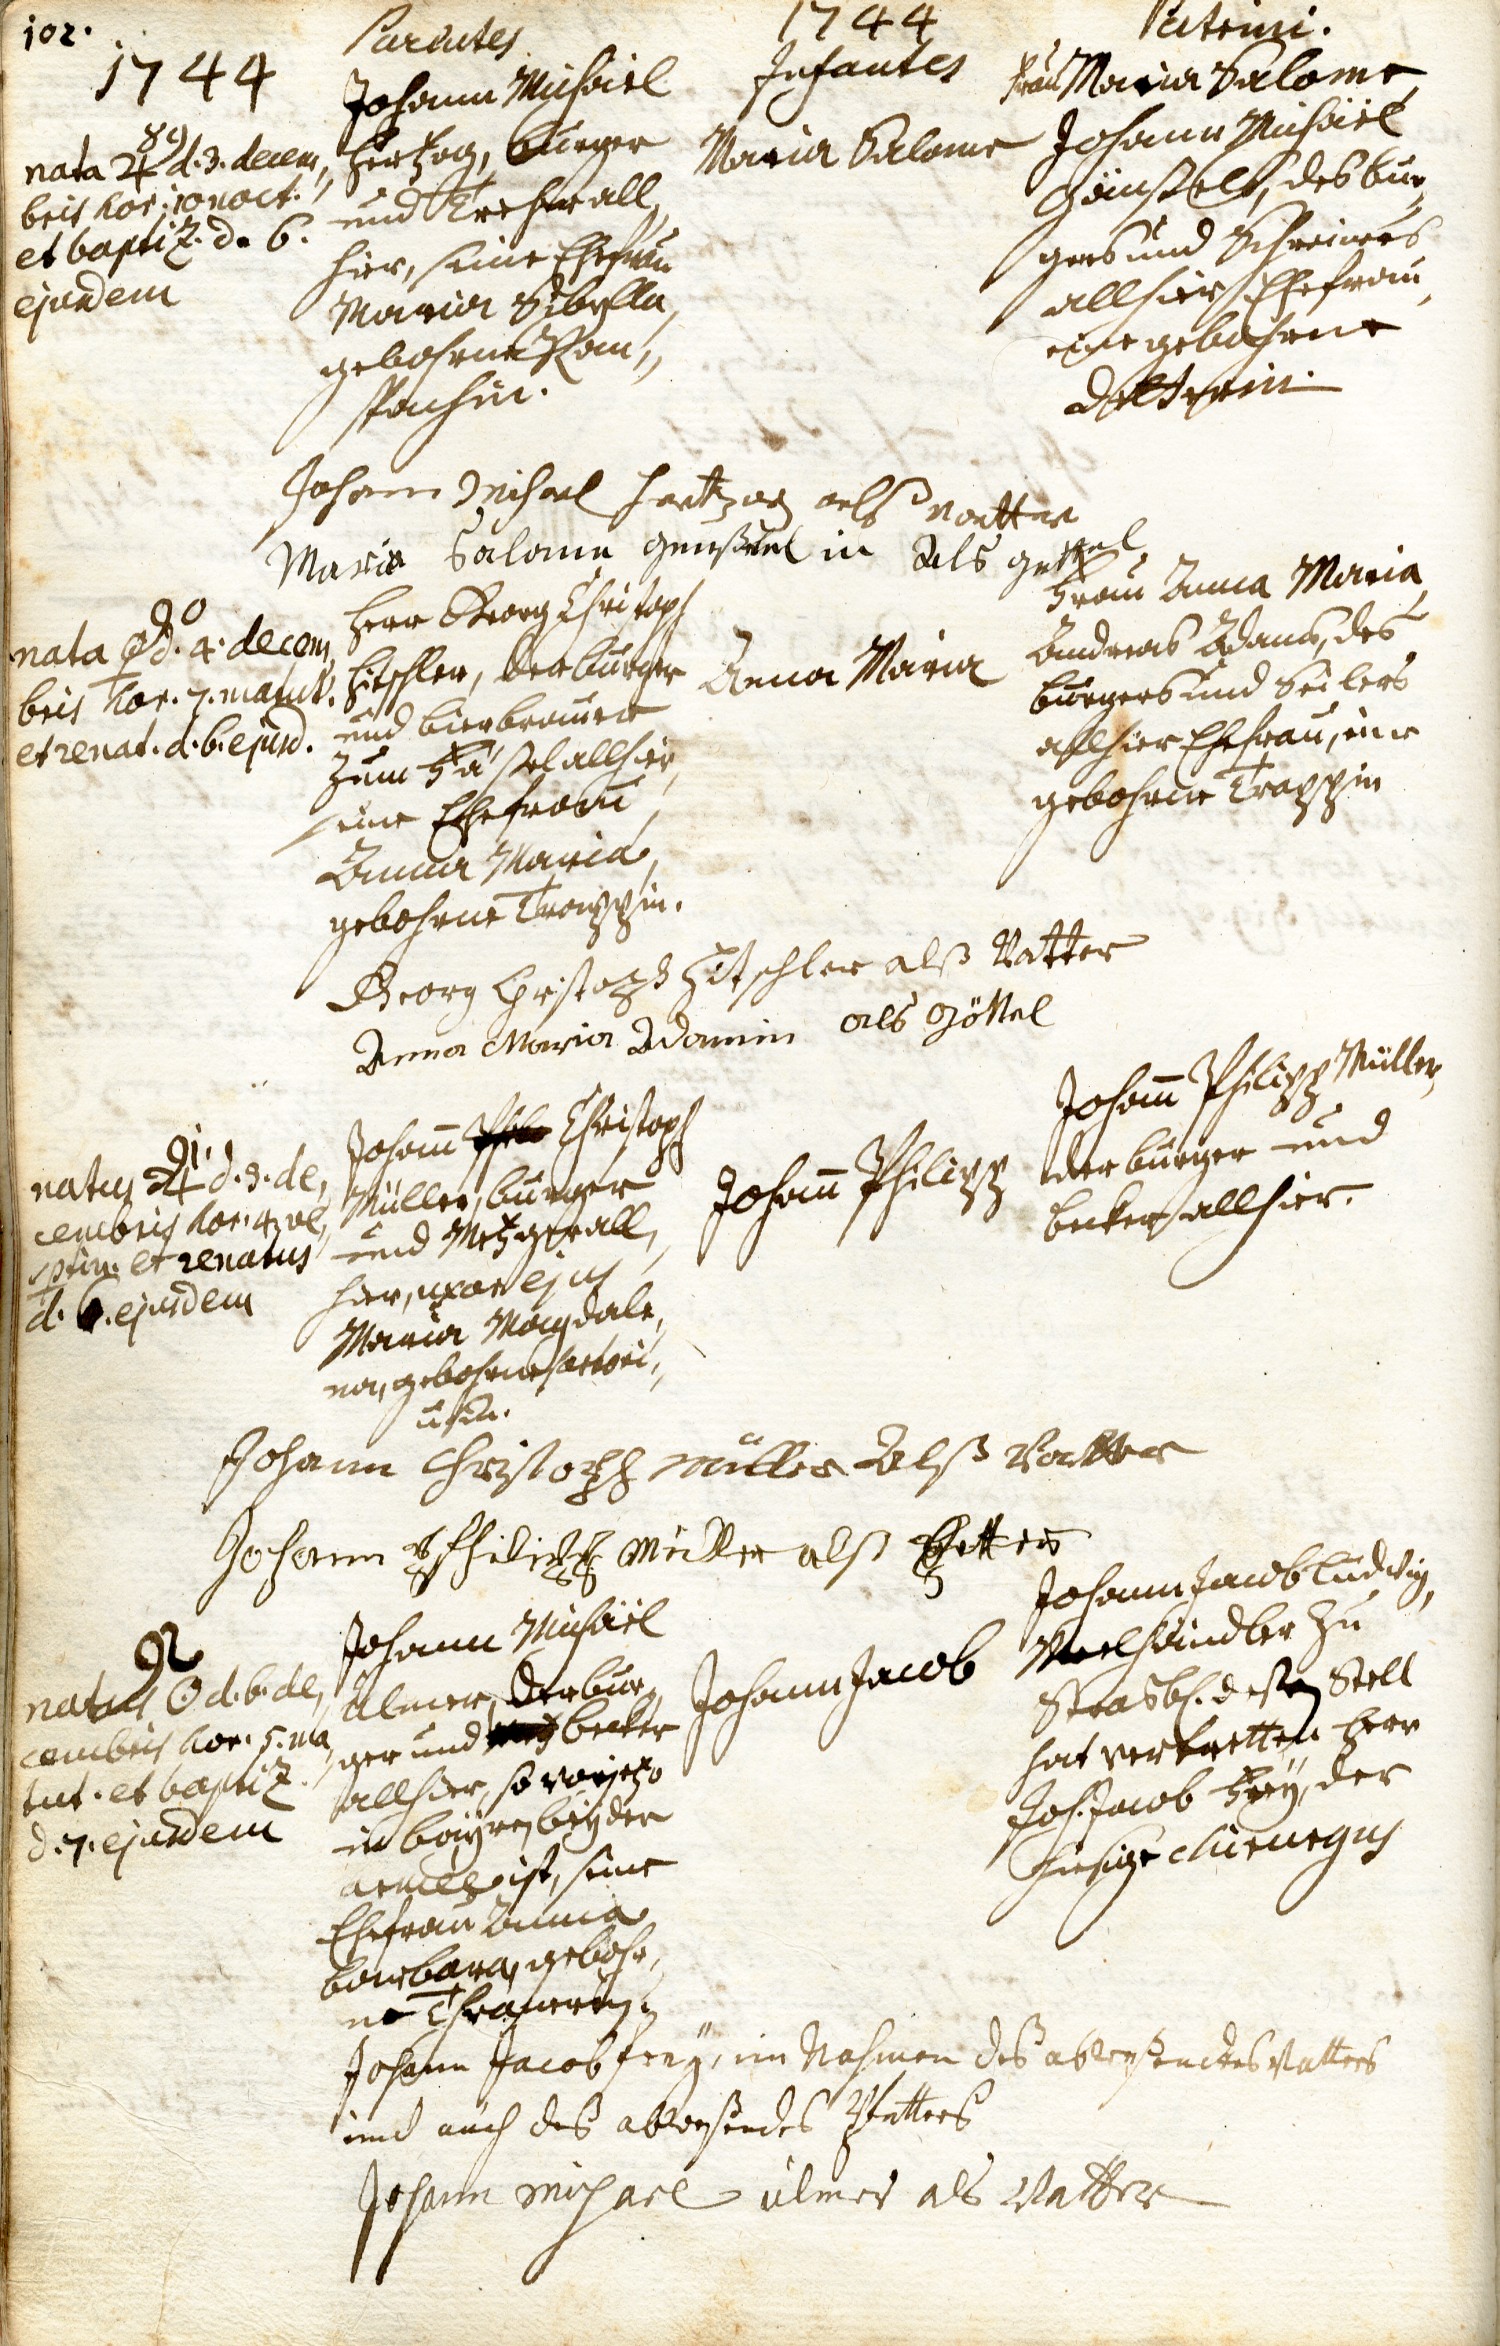 102.
1744
Parentes
1744
Infantes
Patrini.
89
nata ♃ d. 3. decem„
bris hor. 10 noct.
et baptiz. d. 6.
ejusdem
Johann Michäel
Hertzog, burger
und all„
hier, seine Ehefrau
Maria Sibylla,
gebohrne Ram„
spachin.
Maria Salome
Frau Maria Salome,
Johann Michäel
des bur„
gers und Schreiners
allhier Ehefrau,
eine gebohrne
Johann Michael Hertzog alß Vatter
Maria Salome in als gettel
90
nata ♀ d. 4. decem„
bris hor. 7. matut.
et renat. d. 6. ejusd.
Herr Georg Christoph
Hitschler, der burger
und bierbrauer
zum allhier,
seine Ehefrau,
Anna Maria,
gebohrne Trappin.
Anna Maria
Frau Anna Maria,
Andreas Adams, des
burgers und Seilers
allhier Ehefrau, eine
gebohrne Trappin
Georg Christoph Hitschler alß Vatter
Anna Maria Adamin als Göttel
91.
natus ♃ d. 3. de„
cembris hor. 4. ve„
sptin. et renatus
d. 6. ejusdem
Johann Christoph
Müller, burger
und Metzger all„
hier, uxor ejus
Maria Magdale„
na, gebohrne
Johann Philipp
Johann Philipp Müller,
der burger und
becker allhier.
Johann Christoph Müller Alß Vatter
Johann Philipp Müller alß Petter
92
natus ☉ d. 6. de„
cembris hor. 5. ma„
tut. et baptiz.
d. 7. ejusdem
Johann Michäel
Ulmer, der bur„
ger und becker
allhier, so
in bäyren bey der
armee ist, seine
Ehefrau Anna
barbara, gebohr„
ne
Johann Jacob
Johann Jacob Ludwig,
Meelhändler zu
Strasb. dessen Stell
hat vertretten Herr
Joh. Jacob Frey, der
hiesige chirurgus
Johann Jacob Frey, im Nahmen deß abweßendes Vatters
und auch deß abweßendes Pfetters
Johann Michael Ulmer als Vatter